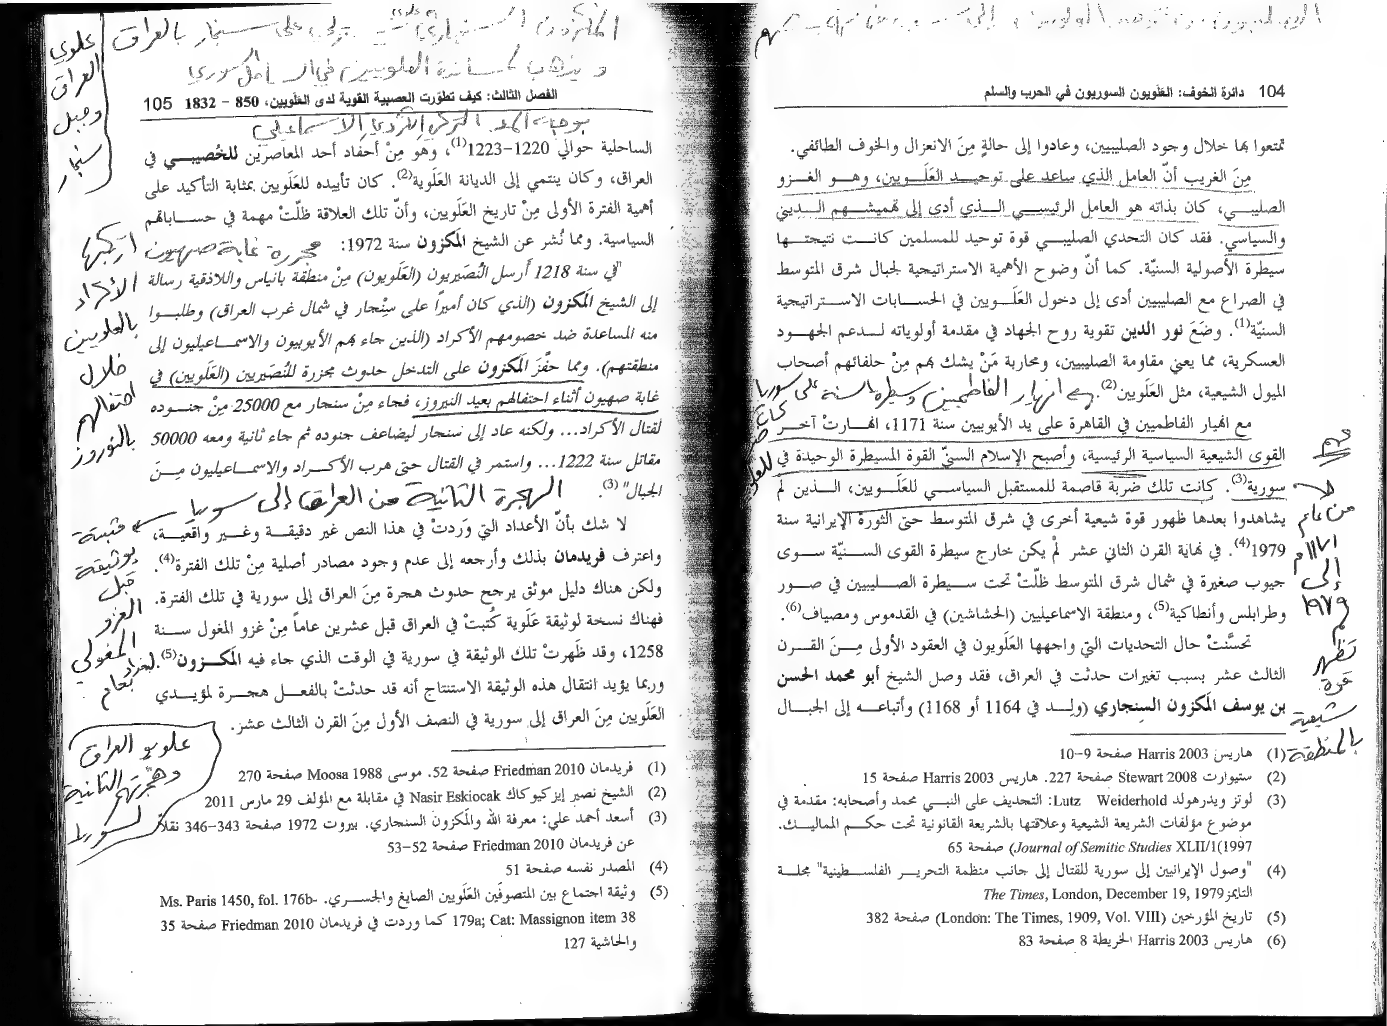 104 دائرة الخوف: العَلَويون السوريون في الحرب والسلم
تمتعوا بها خلال وجود الصليبيين، وعادوا إلى حالةٍ مِنَ الانعزال والخوف الطائفي.
مِنَ الغريب أنّ العامل الذي ساعد على توحيد العَلَويين، وهو الغزو
الصليبي، كان بذاته هو العامل الرئيسي الذي أدى إلى تهميشهم الديني
والسياسي. فقد كان التحدي الصليبي قوة توحيد للمسلمين كانت نتيجتها
سيطرة الأصولية السنيّة. كما أنّ وضوح الأهمية الاستراتيجية لجبال شرق المتوسط
في الصراع مع الصليبيين أدى إلى دخول العَلَويين في الحسابات الاستراتيجية
السنيّة(1). وضَعَ نور الدين تقوية روح الجهاد في مقدمة أولوياته لدعم الجهود
العسكرية، مما يعني مقاومة الصليبيين، ومحاربة مَنْ يشك بهم مِنْ حلفائهم أصحاب
الميول الشيعية، مثل العَلَويين(2).
انهيار الفاطميين وسيطرة السنة على سوريا
مع انهيار الفاطميين في القاهرة على يد الأيوبيين سنة 1171، انهارتْ آخر
القوى الشيعية السياسية الرئيسية، وأصبح الإسلام السنيّ القوة المسيطرة الوحيدة في
سورية(3). كانت تلك ضربة قاصمة للمستقبل السياسي للعَلَويين، الذين لم
يشاهدوا بعدها ظهور قوة شيعية أخرى في شرق المتوسط حتى الثورة الإيرانية سنة
1979(4). في نهاية القرن الثاني عشر لمْ يكن خارج سيطرة القوى السنيّة سوى
جيوب صغيرة في شمال شرق المتوسط ظلّتْ تحت سيطرة الصليبيين في صور
وطرابلس وأنطاكية(5)، ومنطقة الاسماعيليين (الحشاشين) في القدموس ومصياف(6).
تحسنَّتْ حال التحديات التي واجهها العَلَويون في العقود الأولى مِنَ القرن
الثالث عشر بسبب تغيرات حدثت في العراق، فقد وصل الشيخ أبو محمد الحسن
بن يوسف المَكزون السِنجاري (ولِد في 1164 أو 1168) وأتباعه إلى الجبال
مهم
من عام
١١٧١م
إلى
١٩٧٩
م
تظهر
قوة
شيعية
بالمنطقة
(1) هاريس Harris 2003 صفحة 9-10
(2) ستيوارت Stewart 2008 صفحة 227. هاريس Harris 2003 صفحة 15
(3) لوتز ويدرهولد Lutz Weiderhold: التحديف على النبي محمد وأصحابه: مقدمة في
موضوع مؤلفات الشريعة الشيعية وعلاقتها بالشريعة القانونية تحت حكم المماليك.
Journal of Semitic Studies XLII/1(1997) صفحة 65
(4) "وصول الإيرانيين إلى سورية للقتال إلى جانب منظمة التحرير الفلسطينية" مجلة
التايمز The Times, London, December 19, 1979
(5) تاريخ المؤرخين (London: The Times, 1909, Vol. VIII) صفحة 382
(6) هاريس Harris 2003 الخريطة 8 صفحة 83
المكزون السنجاري على سنجار بالعراق
ويذهب لمساندة العلويين في الساحل السوري
الفصل الثالث: كيف تطوّرت العصبية القوية لدى العَلَويين، 850 – 1832 105
الساحلية حوالي 1220-1223(1)، وهُو مِنْ أحفاد أحد المعاصرين للخُصيبي في
العراق، وكان ينتمي إلى الديانة العَلَوية(2). كان تأييده للعَلَويين بمثابة التأكيد على
أهمية الفترة الأولى مِنْ تاريخ العَلَويين، وأنّ تلك العلاقة ظلّتْ مهمة في حساباتهم
السياسية. ومما نُشر عن الشيخ المَكزون سنة 1972: مجزرة غابة صهيون
"في سنة 1218 أرسل النُصَيريون (العَلَويون) مِنْ منطقة بانياس واللاذقية رسالة
إلى الشيخ المَكزون (الذي كان أميرًا على سِنْجار في شمال غرب العراق) وطلبوا
منه المساعدة ضد خصومهم الأكراد (الذين جاء بهم الأيوبيون والاسماعيليون إلى
منطقتهم). ومما حفّزَ المَكزون على التدخل حدوث مجزرة للنُصَيريين (العَلَويين) في
غابة صهيون أثناء احتفالهم بعيد النيروز، فجاء مِنْ سنجار مع 25000 مِنْ جنوده
لقتال الأكراد... ولكنه عاد إلى سنجار ليضاعف جنوده ثم جاء ثانية ومعه 50000
مقاتل سنة 1222... واستمر في القتال حتى هرب الأكراد والاسماعيليون مِنَ
الجبال"(3). الهجرة الثانية من العراق إلى سوريا
لا شك بأنّ الأعداد التي ورَدتْ في هذا النص غير دقيقة وغير واقعية،
واعترف فريدمان بذلك وأرجعه إلى عدم وجود مصادر أصلية مِنْ تلك الفترة(4).
ولكن هناك دليل موثق يرجح حدوث هجرة مِنَ العراق إلى سورية في تلك الفترة.
فهناك نسخة لوثيقة عَلَوية كُتبتْ في العراق قبل عشرين عاماً مِنْ غزو المغول سنة
1258، وقد ظَهرتْ تلك الوثيقة في سورية في الوقت الذي جاء فيه المَكزون(5).
وربما يؤيد انتقال هذه الوثيقة الاستنتاج أنه قد حدثتْ بالفعل هجرة لمؤيدي
العَلَويين مِنَ العراق إلى سورية في النصف الأول مِنَ القرن الثالث عشر.
علوي
العراق
وجبل
سنجار
ارتكبها
الأكراد
بالعلويين
خلال
احتفالهم
بالنوروز
مثبتة
بوثيقة
قبل
الغزو
المغولي
لبغداد
بعام
علويو العراق
وهجرتهم الثانية
لسوريا
(1) فريدمان Friedman 2010 صفحة 52. موسى Moosa 1988 صفحة 270
(2) الشيخ نصير إيزكيوكاك Nasir Eskiocak في مقابلة مع المؤلف 29 مارس 2011
(3) أسعد أحمد علي: معرفة الله والمَكزون السنجاري. بيروت 1972 صفحة 343-346 نقلاً
عن فريدمان Friedman 2010 صفحة 52-53
(4) المصدر نفسه صفحة 51
(5) وثيقة اجتماع بين المتصوفَين العَلَويين الصايغ والجسري. Ms. Paris 1450, fol. 176b-
179a; Cat: Massignon item 38 كما وردت في فريدمان Friedman 2010 صفحة 35
والحاشية 127